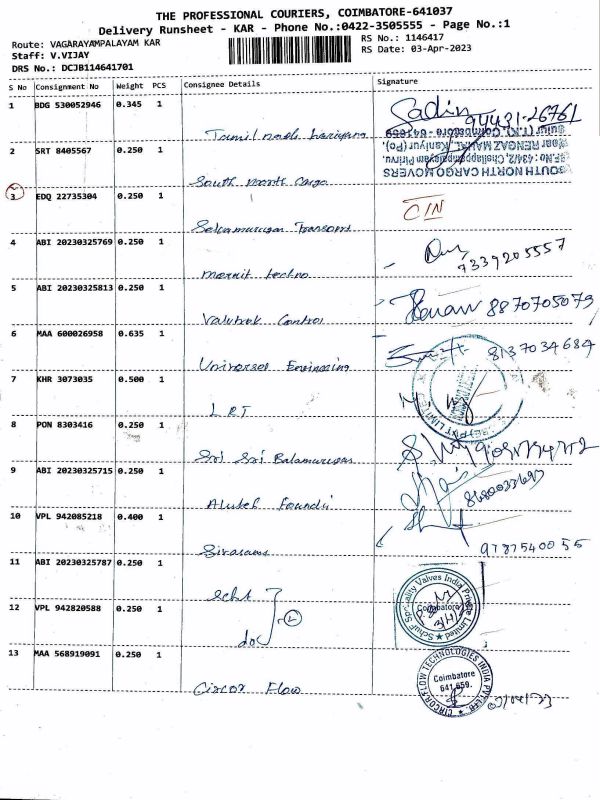 THE PROFESSIONAL COURIERS, COIMBATORE-641037
Delivery Runsheet - KAR - Phone No.:0422-3505555 - Page No.:1
Route: VAGARAYAMPALAYAM KAR
RS No.: 1146417
Staff: V.VIJAY
RS Date: 03-Apr-2023
DRS No.: DCJB114641701
S No Consignment No Weight PCS Consignee Details Signature
1 BDG 530052946 0.345 1
Tamil nadu hariyana
94431-26761
2 SRT 8405567 0.250 1
South north Cargo
SOUTH NORTH CARGO MOVERS
3 EDQ 22735304 0.250 1
Selvamurugan Transport
4 ABI 20230325769 0.250 1
techno
7339205557
5 ABI 20230325813 0.250 1
Control
8870705079
6 MAA 600026958 0.635 1
Universal Engineering
8137034684
7 KHR 3073035 0.500 1
8 PON 8303416 0.250 1
Sri Sri Balamurugan
9 ABI 20230325715 0.250 1
10 VPL 942085218 0.400 1
9787540055
11 ABI 20230325787 0.250 1
Schuf Speciality Valves India Private Limited
Coimbatore
12 VPL 942820588 0.250 1
do
2
13 MAA 568919091 0.250 1
Circor Flow
CIRCOR FLOW TECHNOLOGIES INDIA PVT LTD
Coimbatore
641 659.